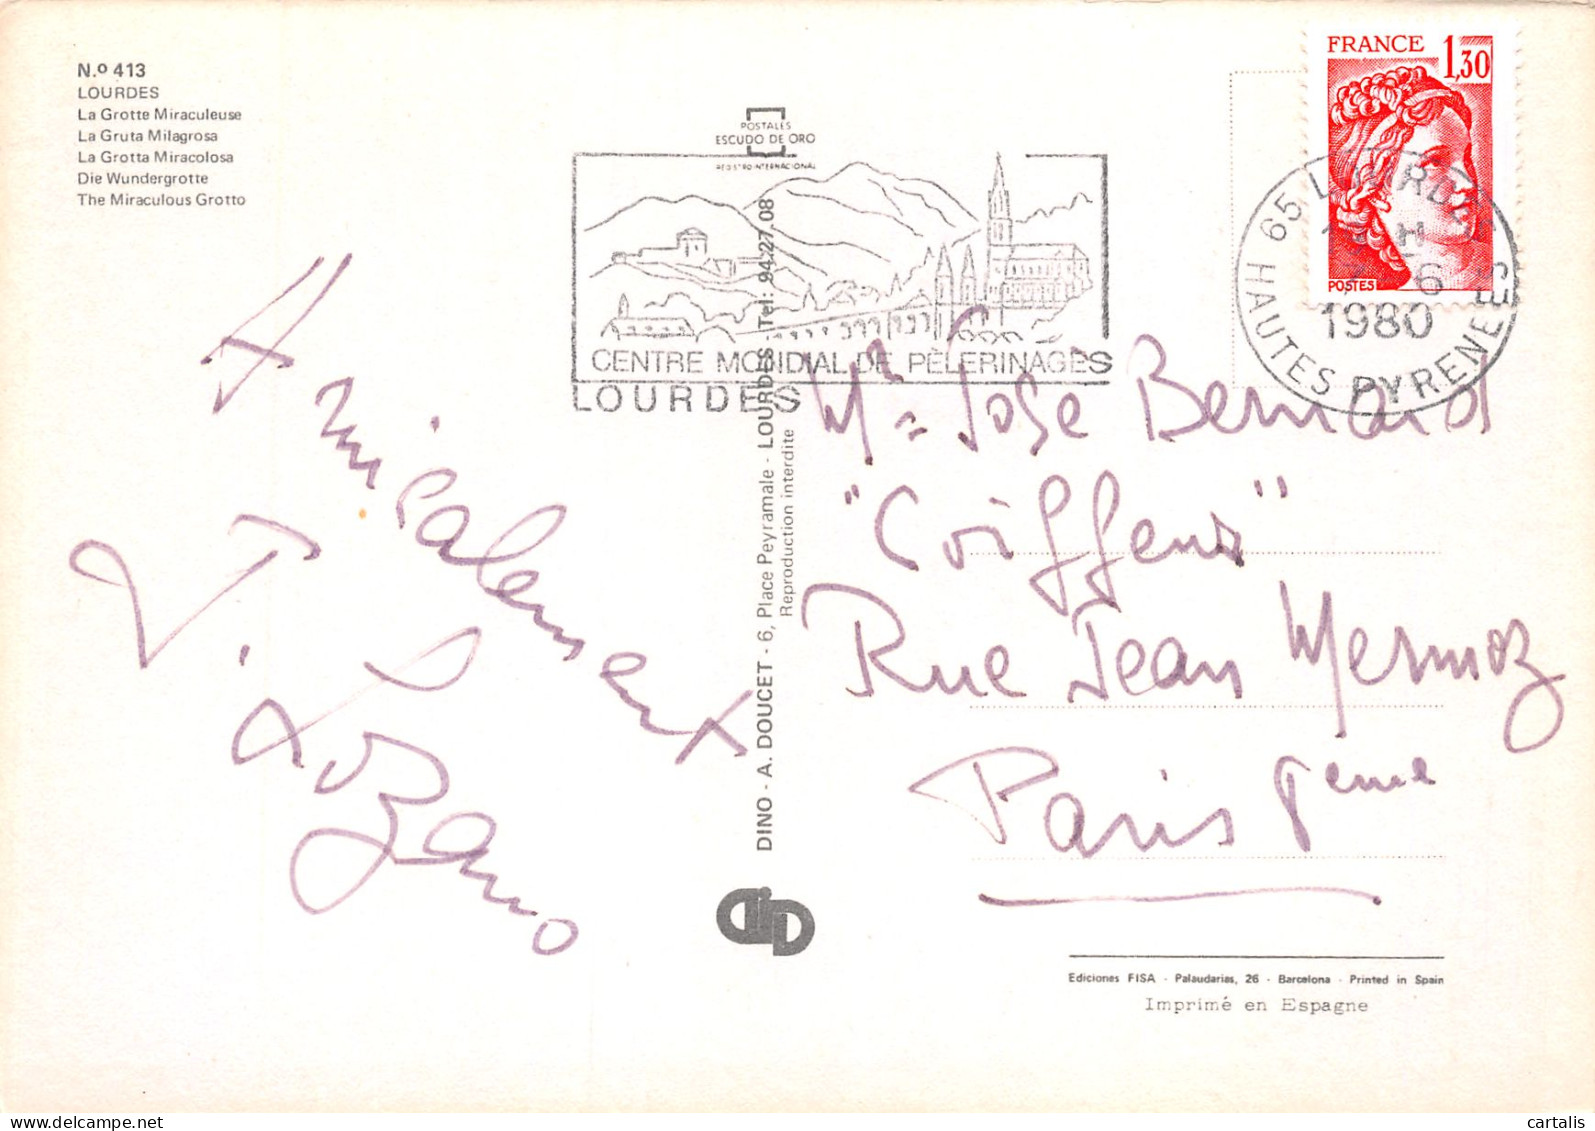 N.º 413
LOURDES
La Grotte Miraculeuse
La Gruta Milagrosa
La Grotta Miracolosa
Die Wundergrotte
The Miraculous Grotto
POSTALES
ESCUDO DE ORO
REGISTRO INTERNACIONAL
CENTRE MONDIAL DE PÈLERINAGES
LOURDES
FRANCE 1,30
POSTES
65 LOURDES
H
6
1980
HAUTES PYRENEES
Amicalement
J. Lozano
DINO - A. DOUCET - 6, Place Peyramale - LOURDES - Tel: 94.27.08
Reproduction interdite
Mr José Bernard
"Coiffeur"
Rue Jean Mermoz
Paris 8eme
DiD
Ediciones FISA - Palaudarias, 26 - Barcelona - Printed in Spain
Imprimé en Espagne
cartalis / Delcampe.net